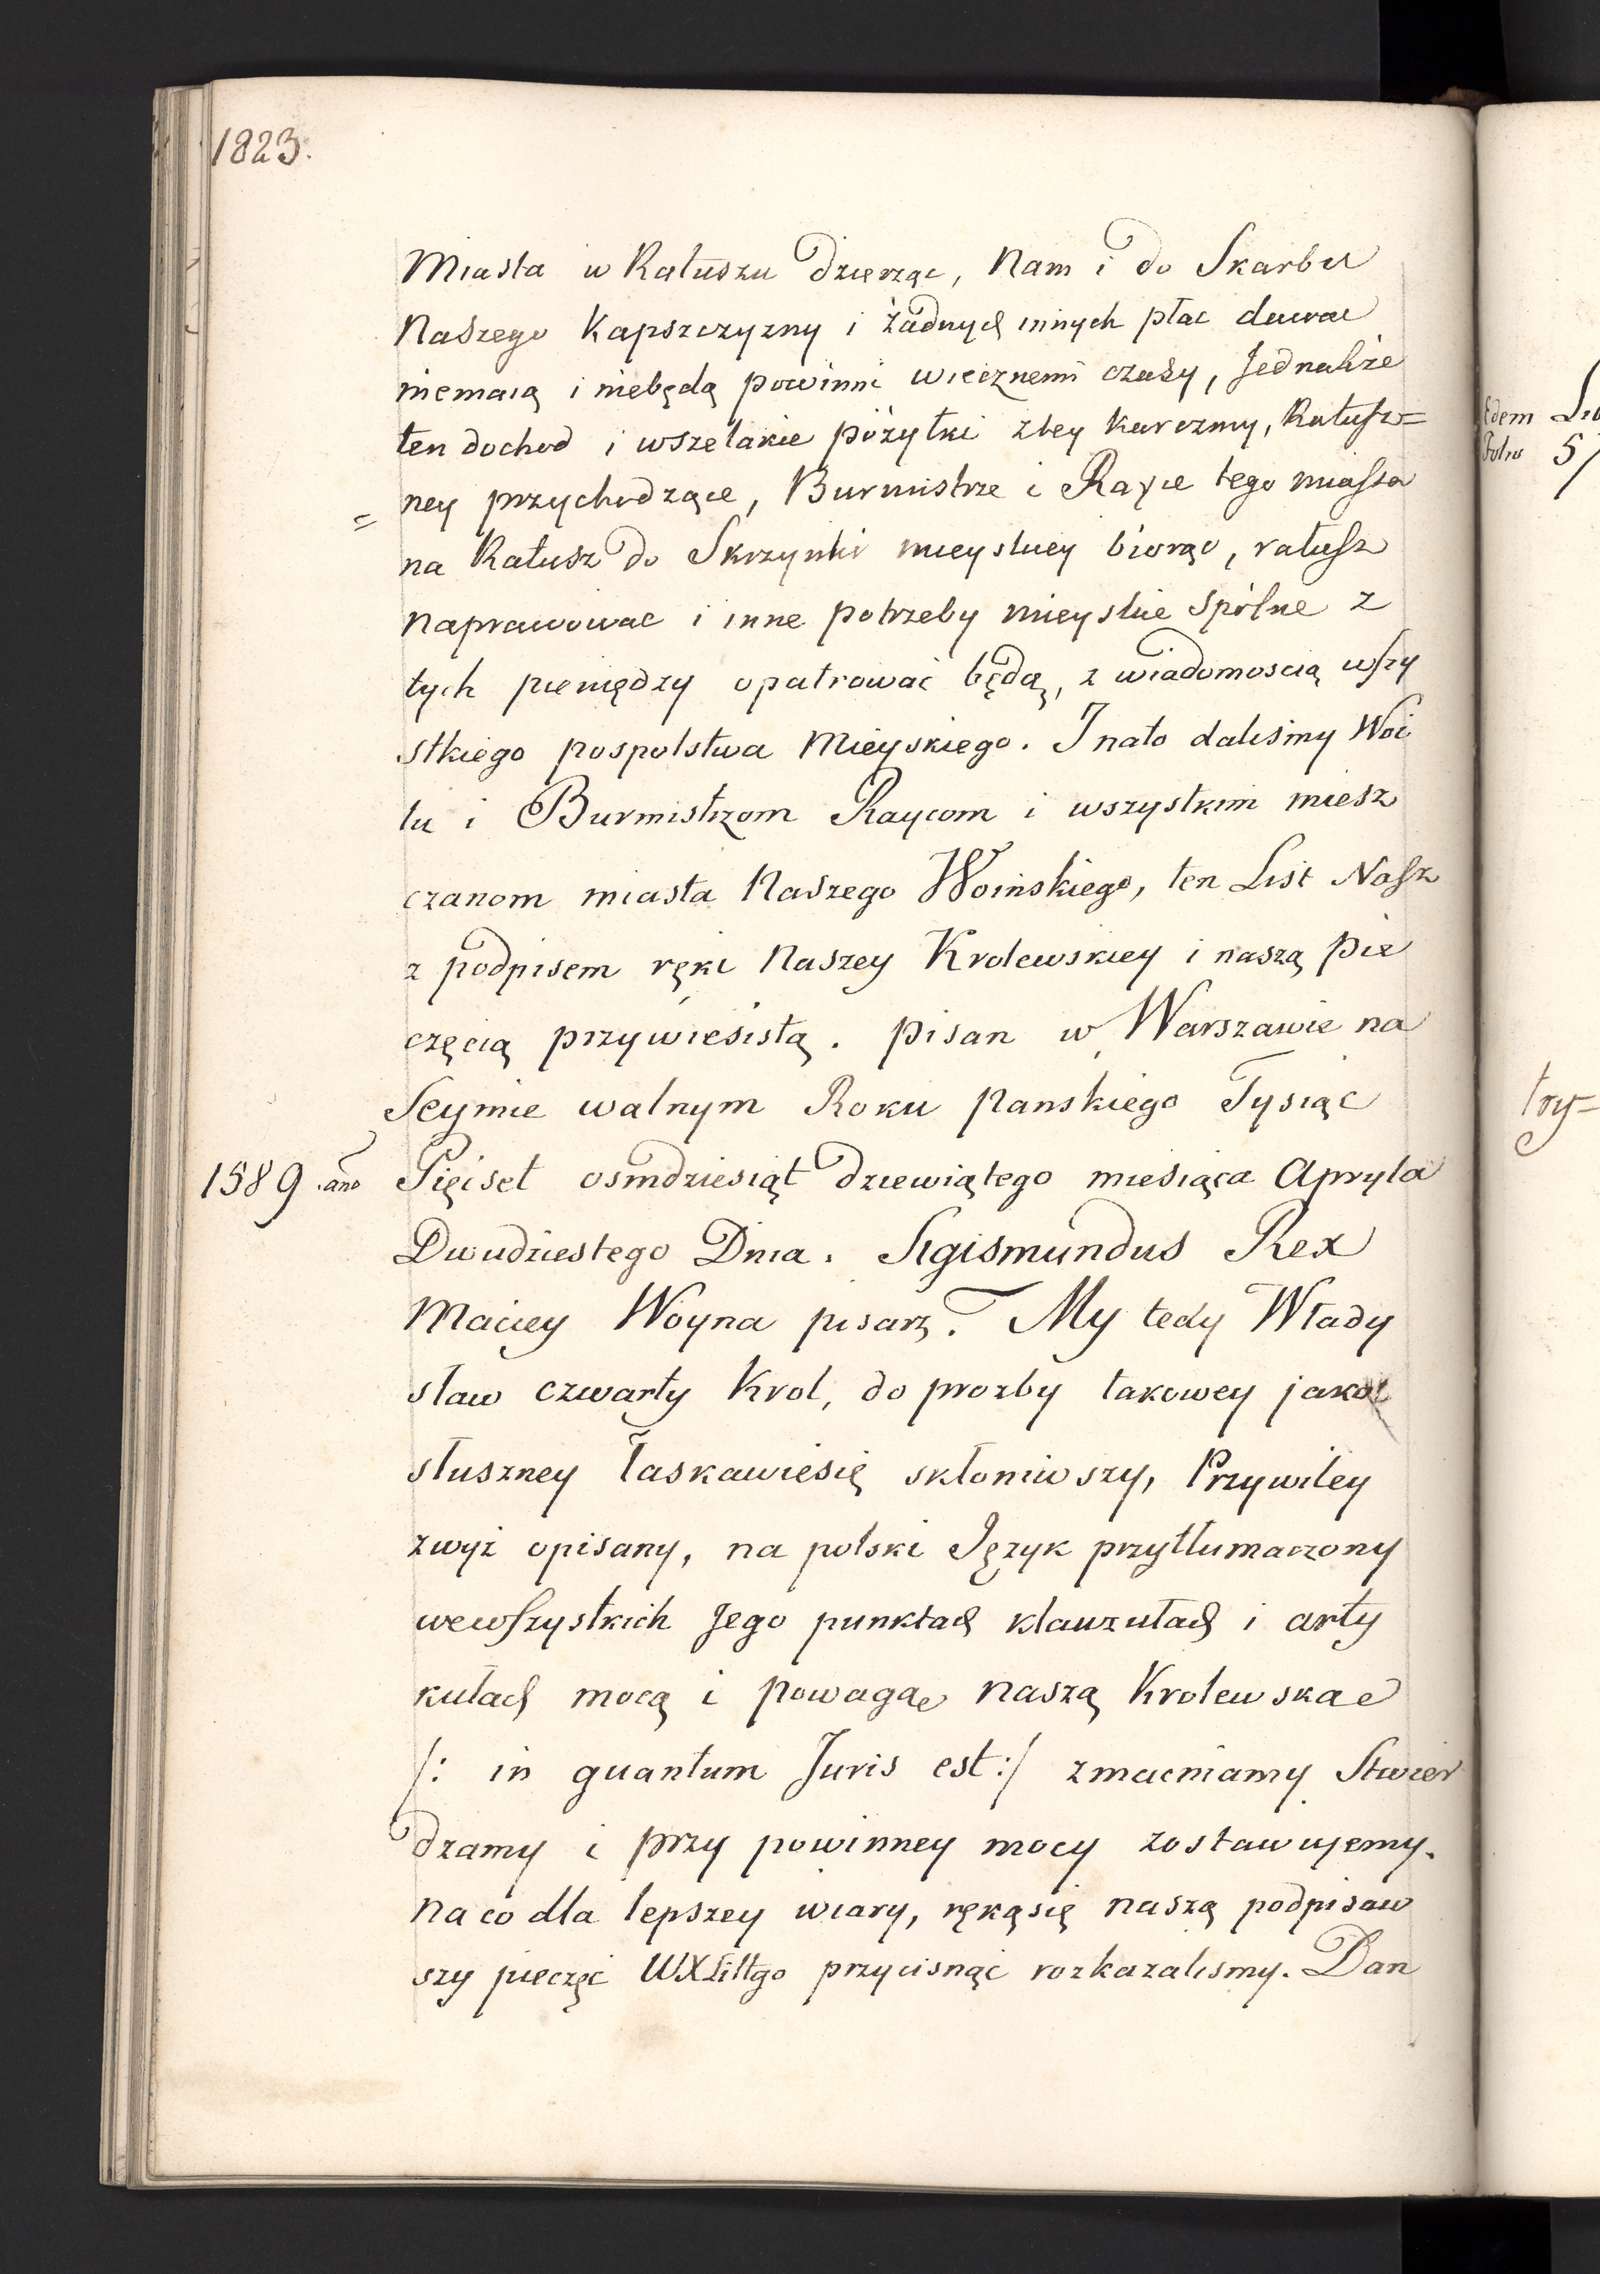 1823.
Miasta w Ratuszu dzierząc, Nam i do Skarbu
Naszego Kapszczyzny i żadnych innych płac dawac
niemaią i niebędą powinni wiecznemi czasy, Jednakże
ten dochod i wszelakie pożytki z tey karczmy, Ratusz=
= ney przychodzące, Burmistrze i Rayce tego miasta
na Ratusz do Skrzynki mieyskiey biorąc, ratusz
naprawować i inne potrzeby mieyskie Spólne z
tych pieniędzy opatrować będą, z wiadomoscią wszy
stkiego pospolstwa Mieyskiego. I nato dalismy Woi
tu i Burmistrzom Raycom i wszystkim miesz
czanom miasta Naszego Woińskiego, ten List Nasz
z podpisem ręki Naszey Krolewskiey i naszą pie
częcią przywiesistą. pisan w Warszawie na
Seymie walnym Roku panskiego Tysiąc
1589. ano Pięćset osmdziesiąt dziewiątego miesiąca Apryla
Dwudziestego Dnia. Sigismundus Rex
Maciey Woyna pisarz. My tedy Włady
sław czwarty Krol, do prozby takowey jako
słuszney łaskawiesię skłoniwszy, Przywiley
zwyż opisany, na polski Język przytłumaczony
wewszystkich Jego punktach klauzułach i arty
kułach mocą i powagą naszą Krolewską
/: in quantum Juris est :/ zmacniamy Stwier
dzamy i przy powinney mocy zostawujemy.
na co dla lepszey wiary, ręką się naszą podpisaw
szy pieczęć WXLittgo przycisnąć rozkazalismy. Dan
try=